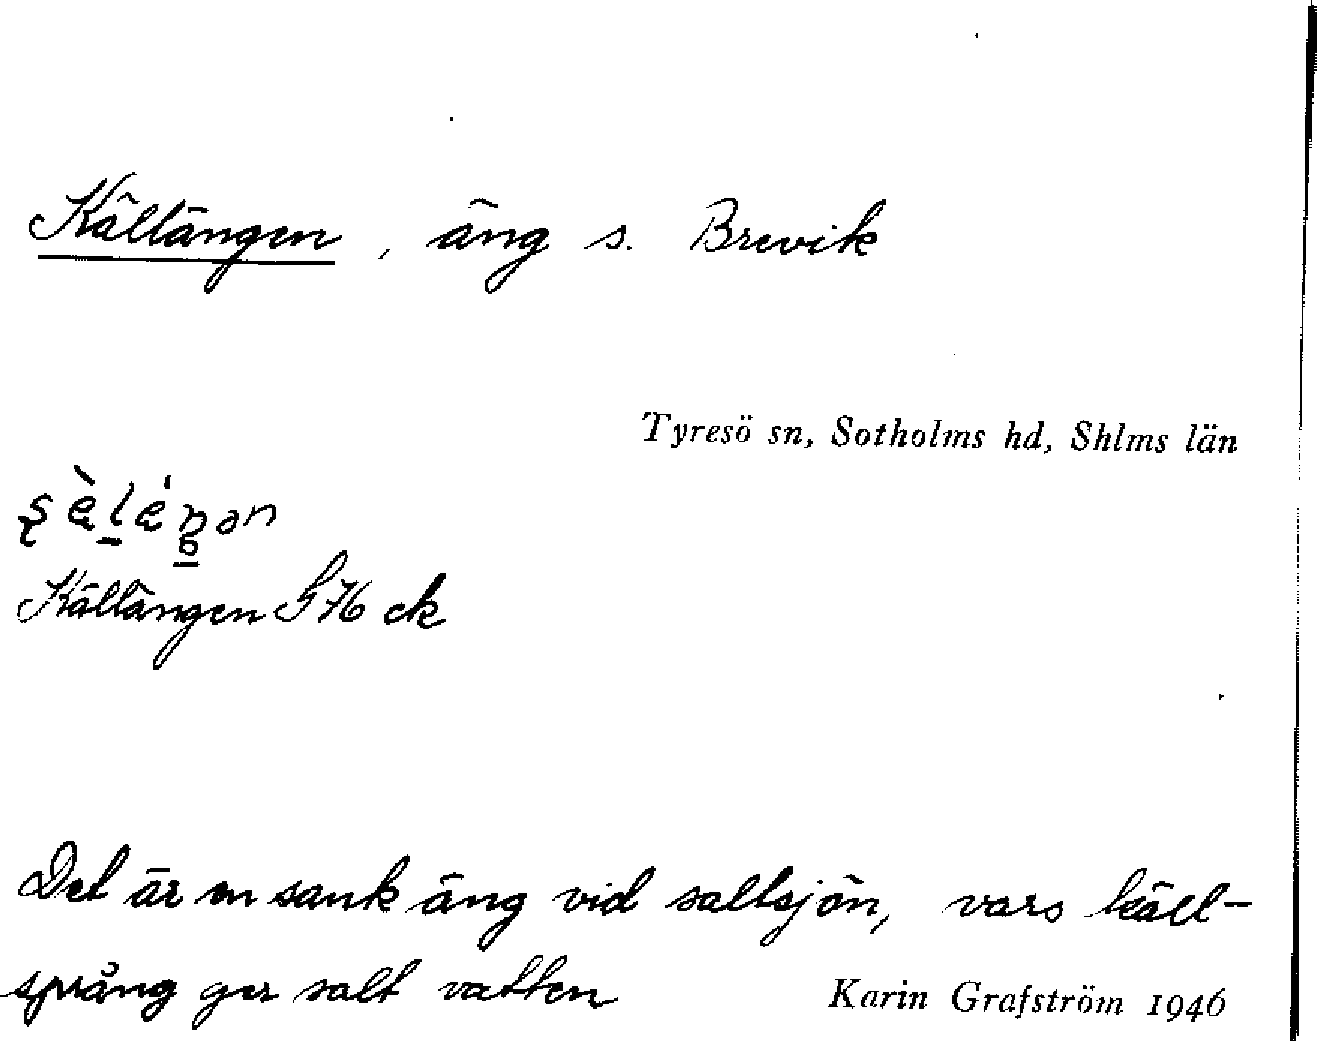 Källängen, äng s. Brevik
Tyresö sn, Sotholms hd, Shlms län
Källängen G 76 ck
Det är en sank äng vid saltsjön, vars käll-
språng ger salt vatten
Karin Grafström 1946